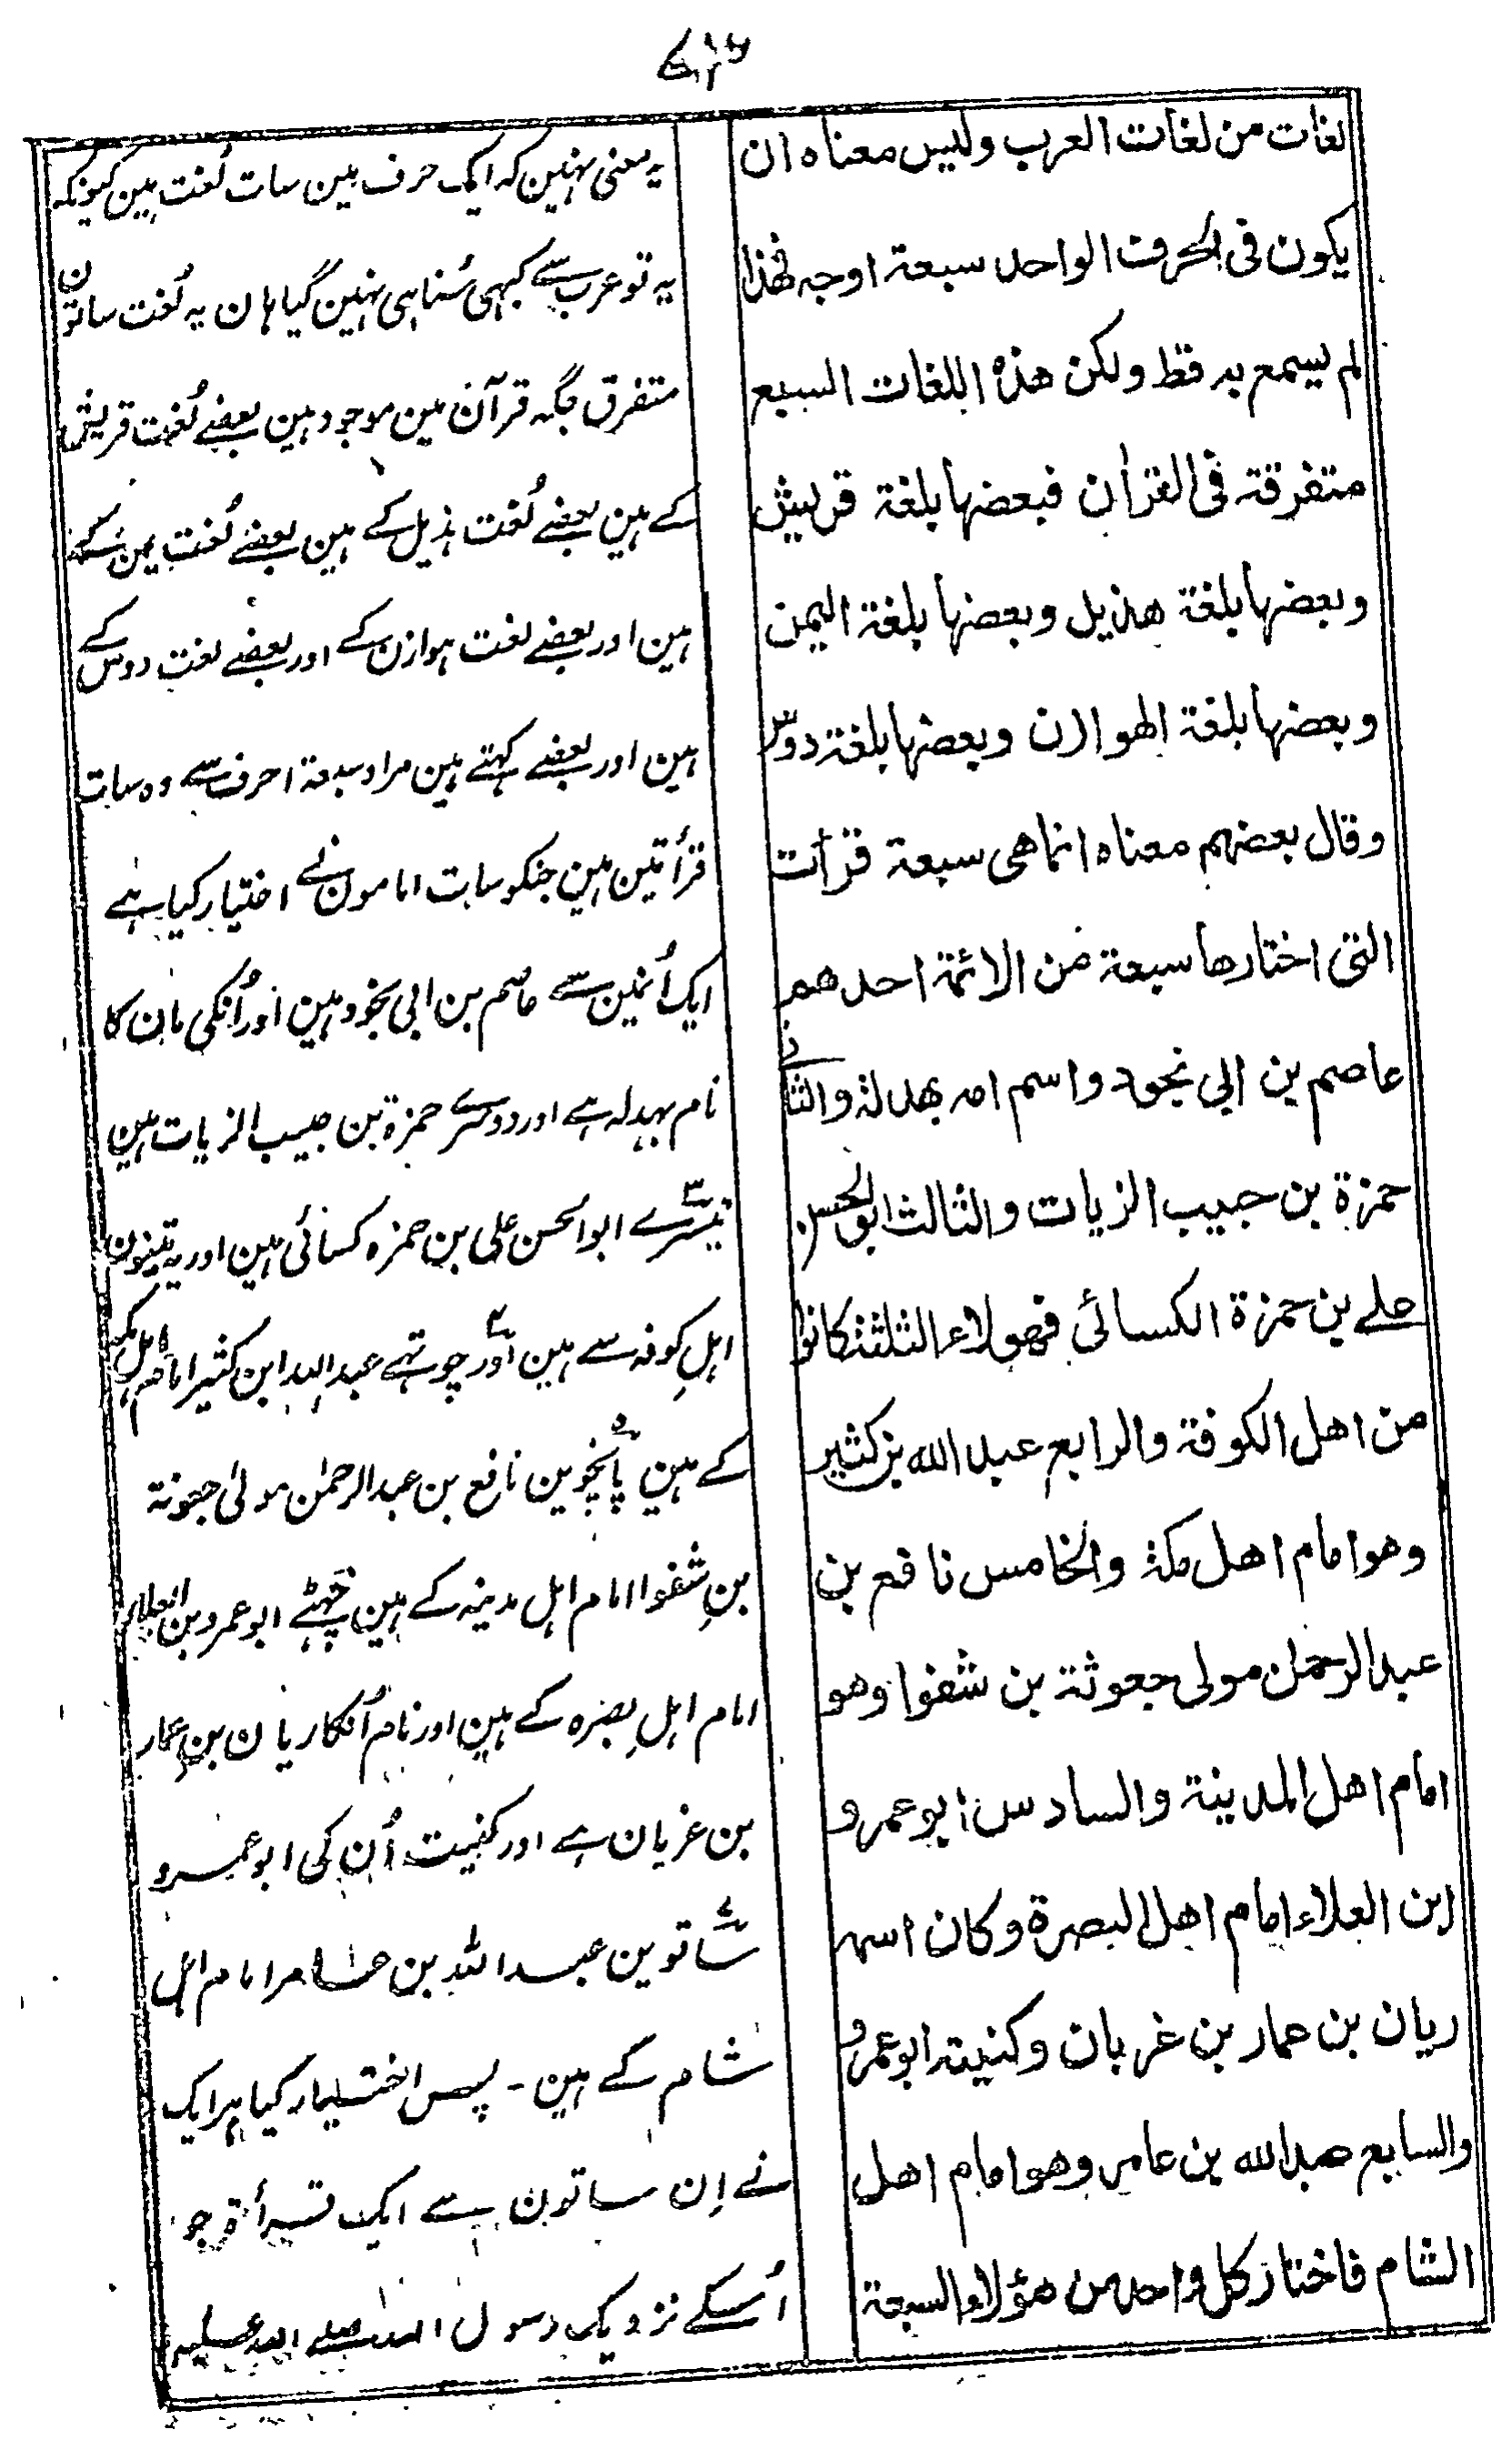 لغات من لغات العرب وليس معناه ان
يكون فى الحرف الواحد سبعة اوجه فهذا
لم يسمع به قط ولكن هذه اللغات السبع
متفرقة فى القرأن فبعضها بلغة قريش
وبعضها بلغة هذيل وبعضها بلغة اليمن
وبعضها بلغة الهوازن وبعضها بلغة دوس
وقال بعضهم معناه انما هى سبعة قرأت
التى اختارها سبعة من الائمة احدهم
عاصم بن ابي نجود واسم امه بهدلة والثانے
حمزة بن حبيب الزيات والثالث ابو الحسن
علے بن حمزة الكسائى فهولاء الثلثة كانوا
من اهل الكوفة والرابع عبد الله بن كثير
وهو امام اهل مكة والخامس نافع بن
عبد الرحمن مولى جعوثة بن شفوا وهو
امام اهل المدينة والسادس ابو عمرو
ابن العلاء امام اهل البصرة وكان اسمه
ريان بن عمار بن غربان وكنيته ابو عمرو
والسابع عبد الله بن عامر وهو امام اهل
الشام فاختار كل واحد من هؤلاء السبعة
یہ معنی نہین کہ ایک حرف مین سات لُغت ہین کیونکہ
یہ تو عرب سے کبہی سُنا ہی نہین گیا ہان یہ لُغت ساتون
متفرق جگہ قرآن مین موجود ہین بعضے لُغت قریش
کے ہین بعضے لُغت ہذیل کے ہین بعضے لُغت یمن کے
ہین اور بعضے لغت ہوازن کے اور بعضے لغت دوس کے
ہین اور بعضے کہتے ہین مراد سبعة احرف سے وہ سات
قرأتین ہین جنکو سات امامون نے اختیار کیا ہے
ایک اُنمین سے عاصم بن ابی نجود ہین اور اُنکی مان کا
نام بہدلہ ہے اور دوسرے حمزة بن حبیب الزیات ہین
تیسرے ابوالحسن علی بن حمزہ کسائی ہین اور یہ تینون
اہلِ کوفہ سے ہین اور چوتہے عبداللہ ابن کثیر امام اہل مکہ
کے ہین پانچوین نافع بن عبدالرحمٰن مولیٰ جعونة
بنِ شفوا امام اہل مدینہ کے ہین چہٹے ابوعمرو بن العلاء
امام اہلِ بصرہ کے ہین اور نام اُنکا ریان بن عمار
بن غریان ہے اور کنیت اُن کی ابوعمرو
ساتوین عبداللہ بن عامر امام اہل
شام کے ہین - پس اختیار کیا ہرایک
نے اِن ساتون سے ایک قرأة جو
اُسکے نزدیک رسول اللہ صلے اللہ علیہ